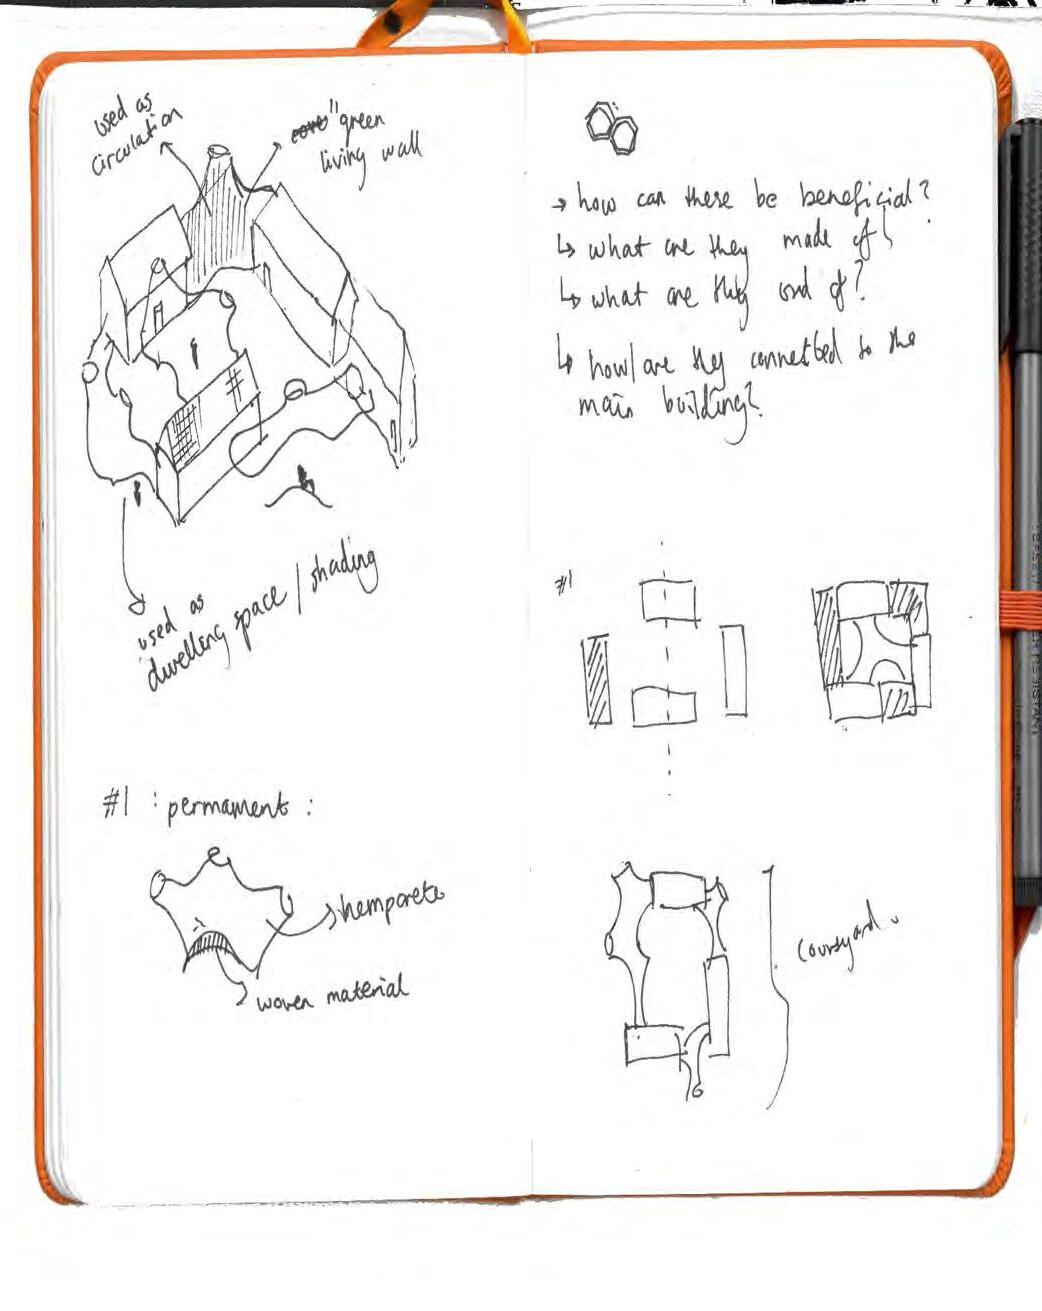 used as
circulation
"green
living wall
used as
dwelling space / shading
#1 : permament :
hemporete
woven material
→ how can these be beneficial?
↳ what are they made of?
↳ what are they of?
↳ how/are they connected to the
main building?
#1
courtyard